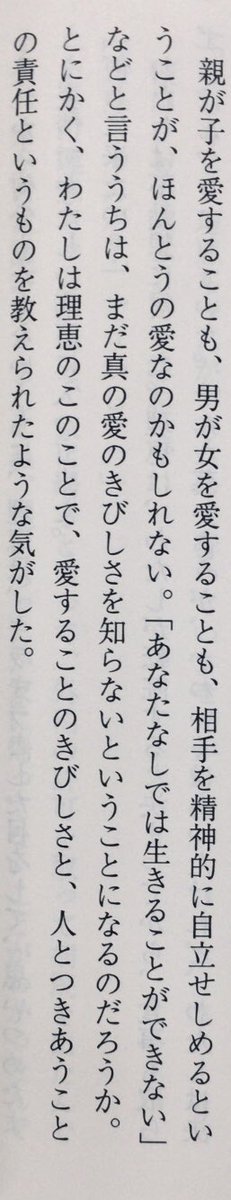 親が子を愛することも、男が女を愛することも、相手を精神的に自立せしめるとい
うことが、ほんとうの愛なのかもしれない。「あなたなしでは生きることができない」
などと言ううちは、まだ真の愛のきびしさを知らないということになるのだろうか。
とにかく、わたしは理恵のこのことで、愛することのきびしさと、人とつきあうこと
の責任というものを教えられたような気がした。